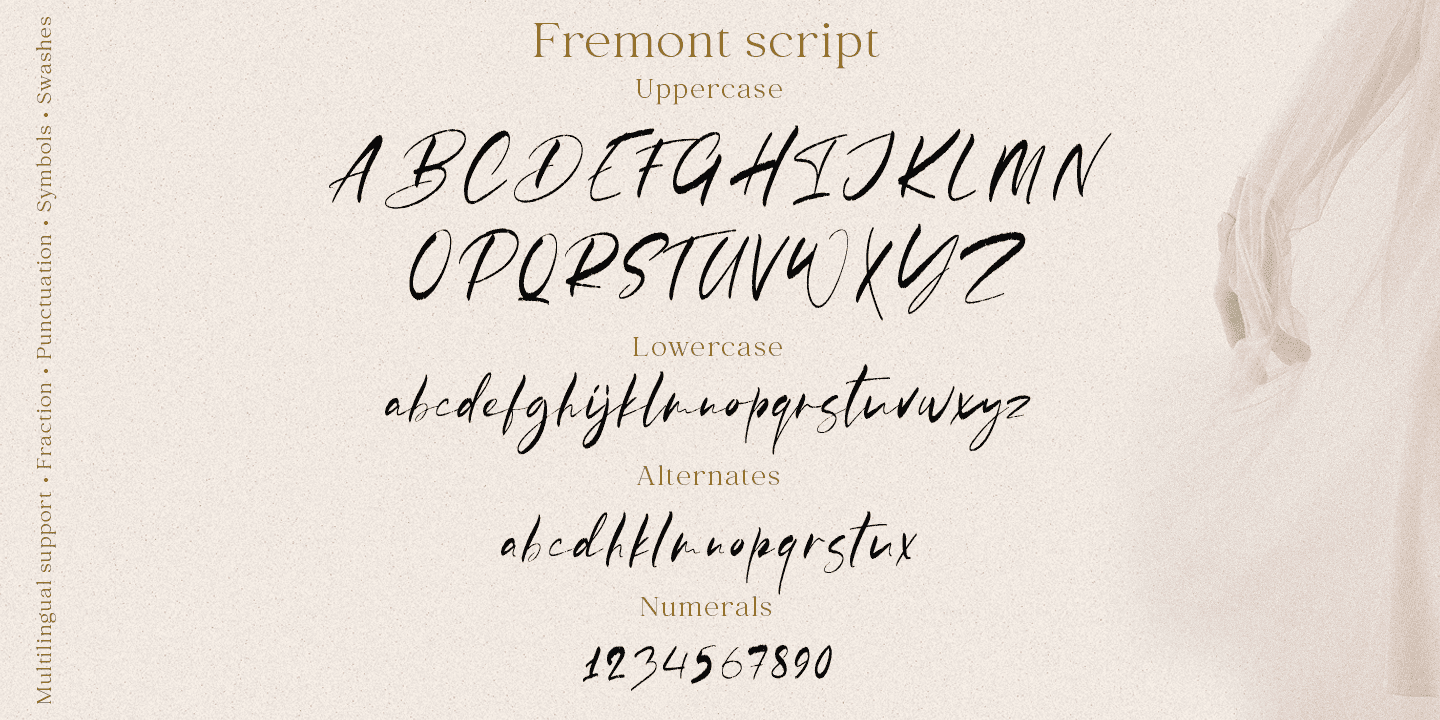 Fremont script
Uppercase
ABCDEFGHIJKLMN
OPQRSTUVWXYZ
Lowercase
abcdefghijklmnopqrstuvwxyz
Alternates
abcdhklmnopqrstux
Numerals
1234567890
Multilingual support • Fraction • Punctuation • Symbols • Swashes